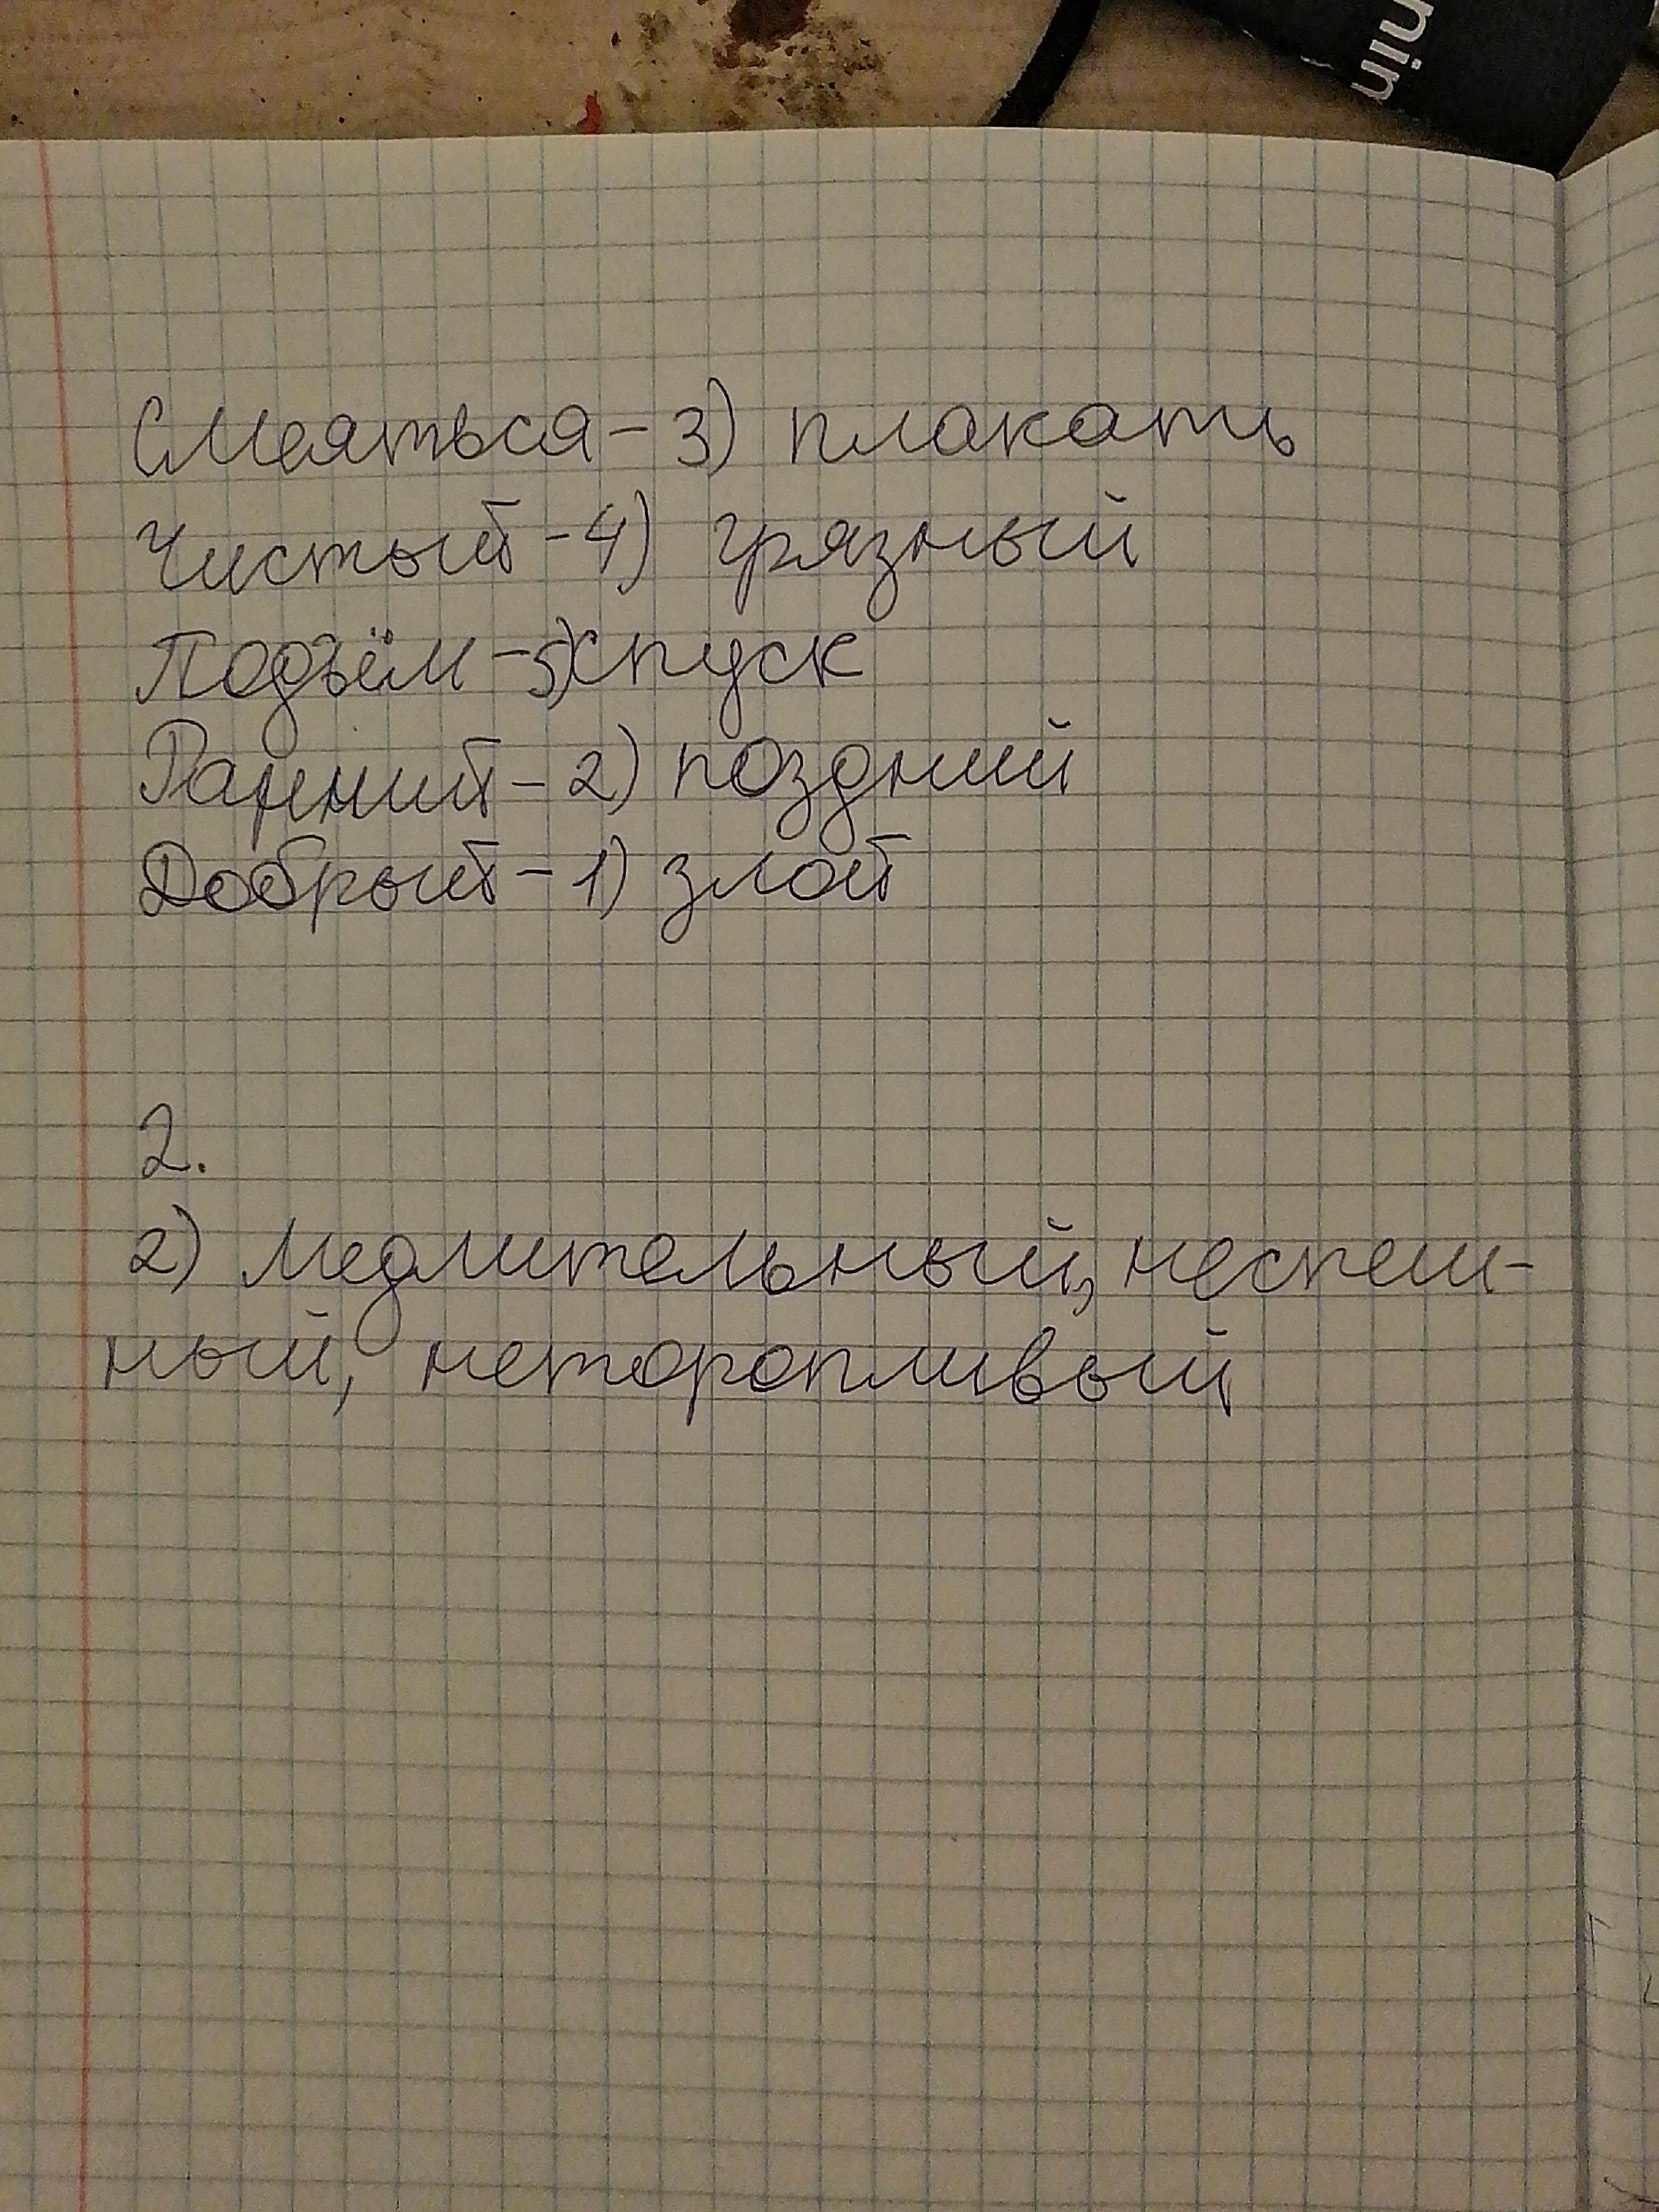 nin
Смеяться - 3) плакать
Чистый - 4) грязный
Подъём - 5) спуск
Ранний - 2) поздний
Добрый - 1) злой
2.
2) медлительный, неспеш-
ный, неторопливый